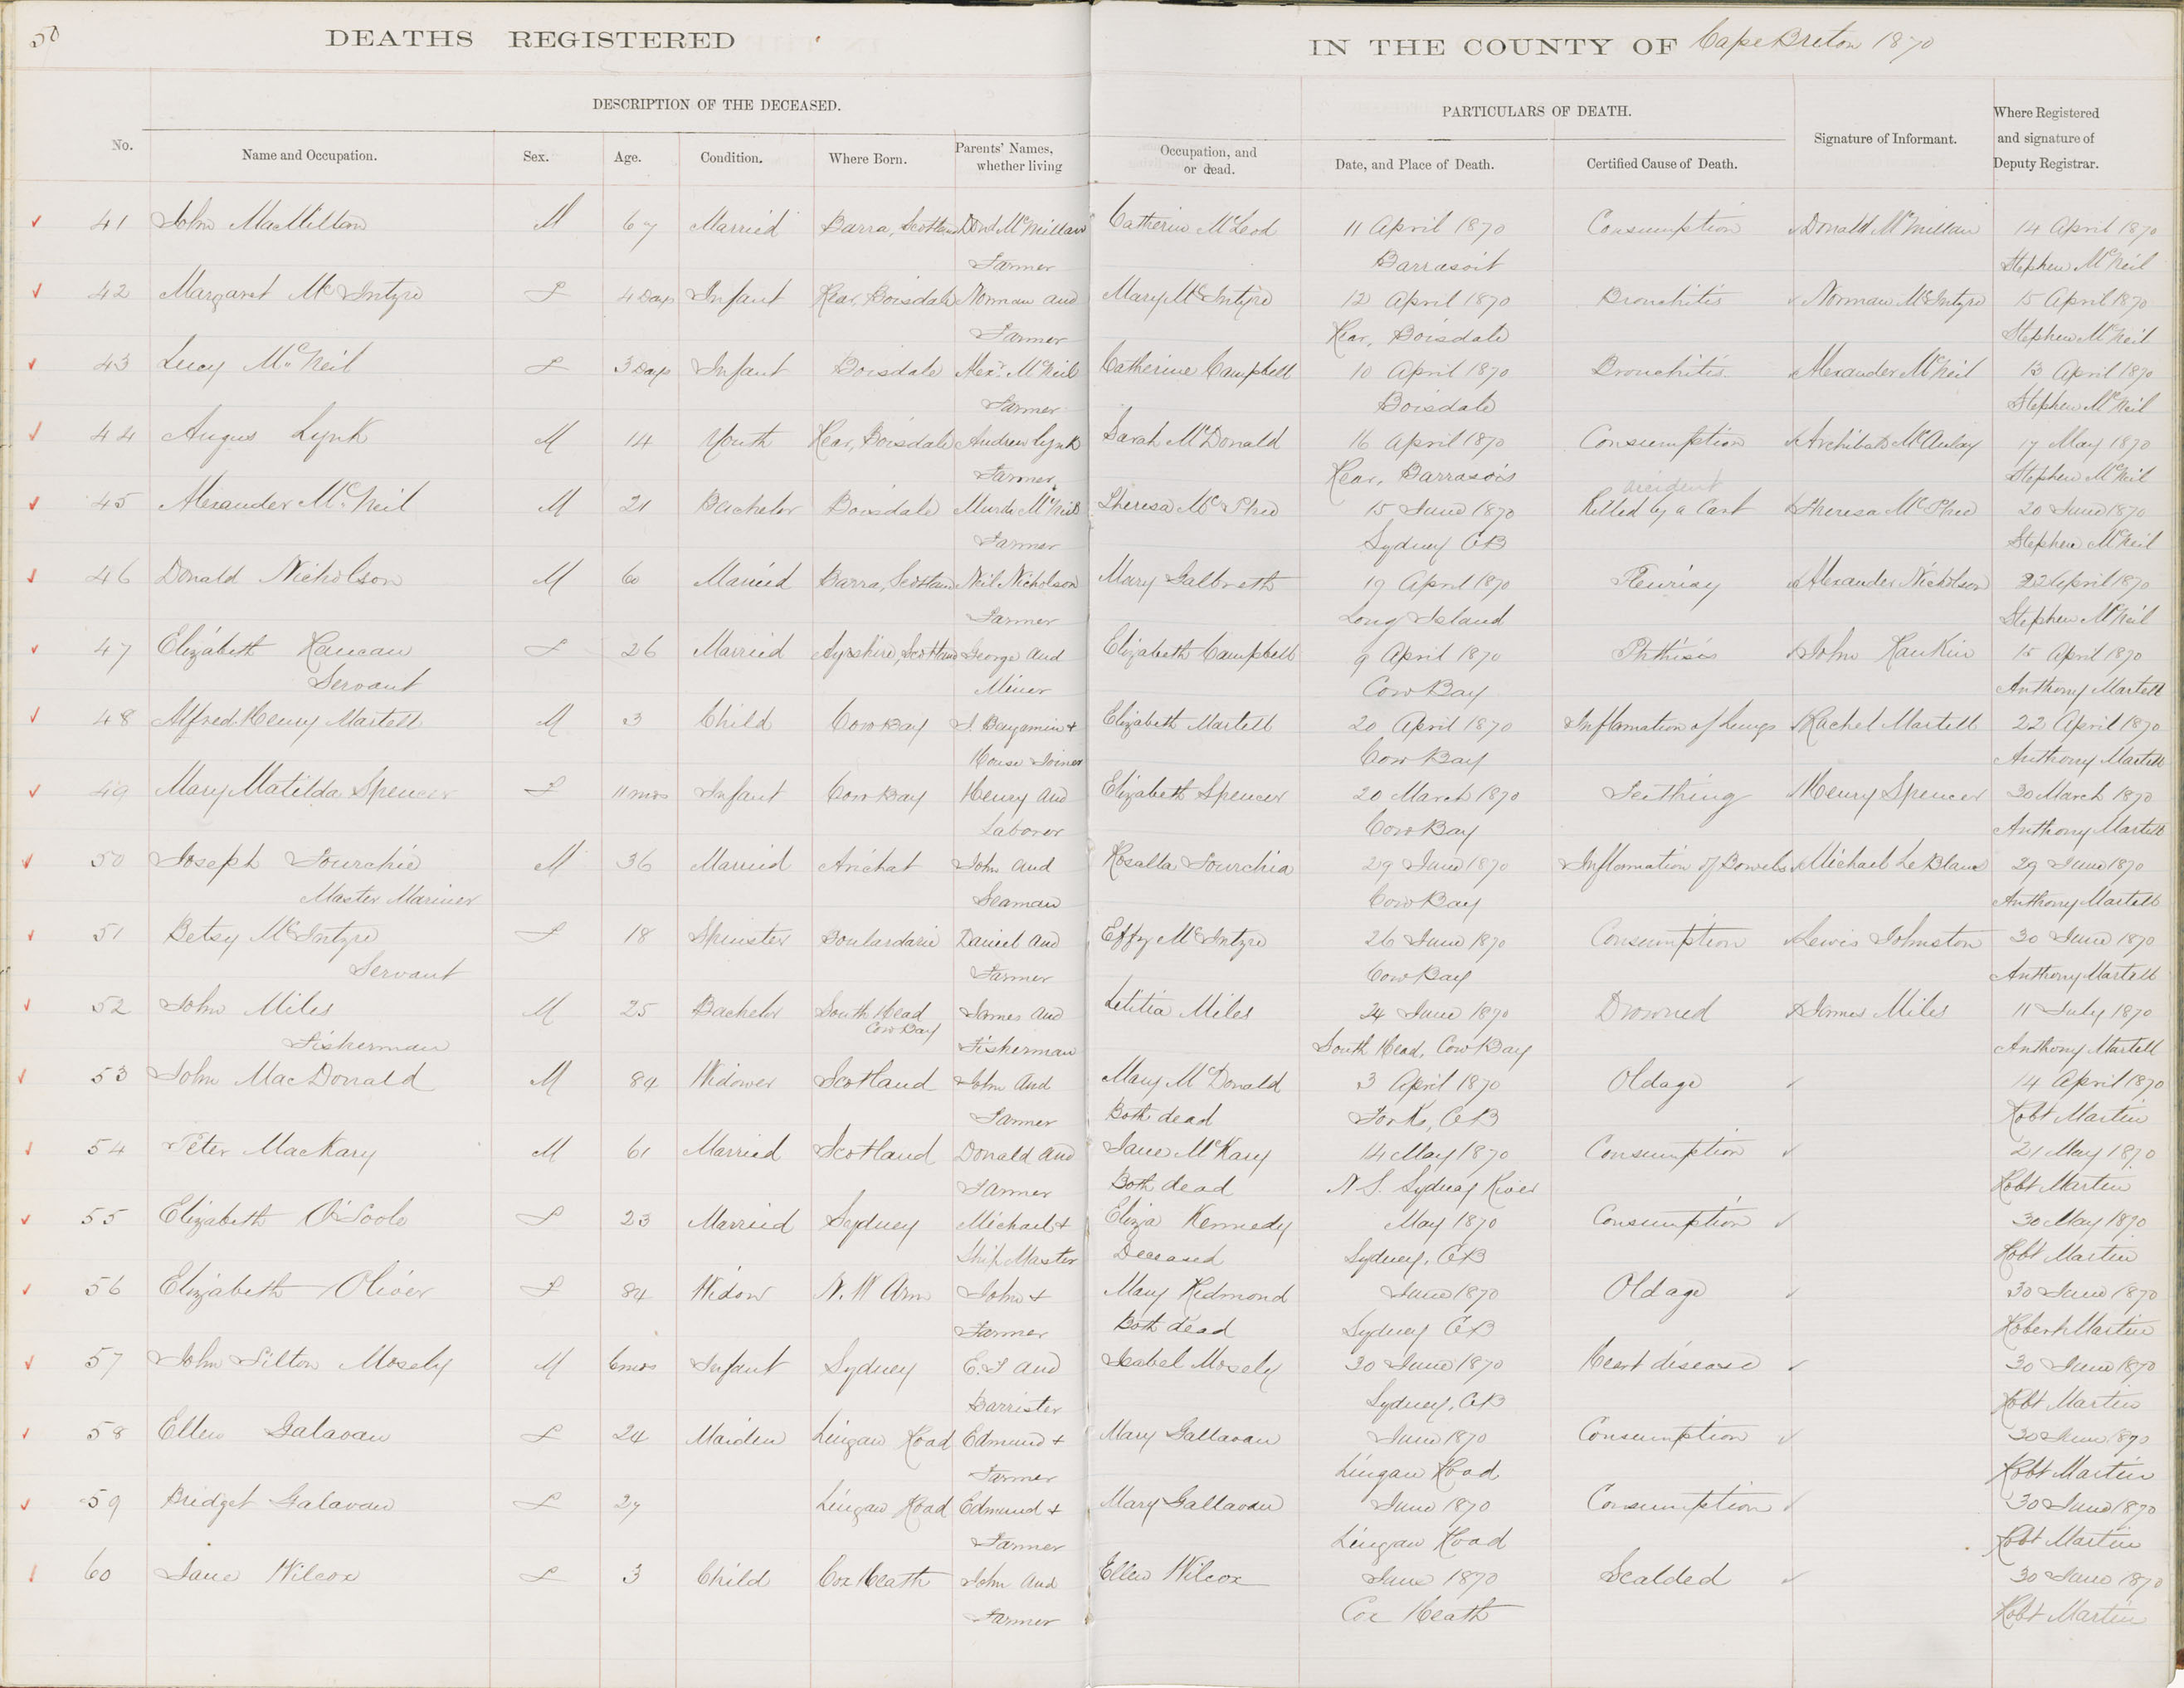 50
DEATHS REGISTERED IN THE COUNTY OF Cape Breton 1870
DESCRIPTION OF THE DECEASED. PARTICULARS OF DEATH. Where Registered and signature of Deputy Registrar.
No. Name and Occupation. Sex. Age. Condition. Where Born. Parents' Names, whether living Occupation, and or dead. Date, and Place of Death. Certified Cause of Death. Signature of Informant.
41 John MacMillan M 67 Married Barra, Scotland Dond McMillan Catherine McLeod 11 April 1870 Consumption Donald McMillan 14 April 1870
Farmer Barrasoit Stephen McNeil
42 Margaret McIntyre F 4 Days Infant Rear, Boisdale Norman and Mary McIntyre 12 April 1870 Bronchitis Norman McIntyre 15 April 1870
Farmer Rear, Boisdale Stephen McNeil
43 Lucy McNeil F 3 Days Infant Boisdale Alexr. McNeil Catherine Campbell 10 April 1870 Bronchitis Alexander McNeil 13 April 1870
Farmer Boisdale Stephen McNeil
44 Angus Lynk M 14 Youth Rear, Boisdale Andrew Lynk Sarah McDonald 16 April 1870 Consumption Archibald McAulay 17 May 1870
Farmer Rear, Barrasois Stephen McNeil
accident
45 Alexander McNeil M 21 Bachelor Boisdale Murdk McNeil Theresa McPhee 15 June 1870 Killed by a Cart Theresa McPhee 20 June 1870
Farmer Sydney CB Stephen McNeil
46 Donald Nicholson M 60 Married Barra, Scotland Neil Nicholson Mary Galbreth 19 April 1870 Pleurisy Alexander Nicholson 22 April 1870
Farmer Long Island Stephen McNeil
47 Elizabeth Rancan F 26 Married Ayrshire, Scotland George and Elizabeth Campbell 9 April 1870 Phthisis John Rankin 15 April 1870
Servant Miner Cow Bay Anthony Martell
48 Alfred Henry Martell M 3 Child Cow Bay J. Benjamin + Elizabeth Martell 20 April 1870 Inflamation of Lungs Rachel Martell 22 April 1870
House Joiner Cow Bay Anthony Martell
49 Mary Matilda Spencer F 11 mos Infant Cow Bay Henry and Elizabeth Spencer 20 March 1870 Teething Henry Spencer 30 March 1870
Laborer Cow Bay Anthony Martell
50 Joseph Fourchie M 36 Married Arichat John and Rosalla Fourchia 29 June 1870 Inflamation of Bowels Michael LeBlanc 29 June 1870
Master Mariner Seaman Cow Bay Anthony Martell
51 Betsy McIntyre F 18 Spinster Boulardarie Daniel and Effy McIntyre 26 June 1870 Consumption Lewis Johnston 30 June 1870
Servant Farmer Cow Bay Anthony Martell
52 John Miles M 25 Bachelor South Head Cow Bay James and Letitia Miles 24 June 1870 Drowned James Miles 11 July 1870
Fisherman Fisherman South Head, Cow Bay Anthony Martell
53 John MacDonald M 84 Widower Scotland John and Mary McDonald 3 April 1870 Old age 14 April 1870
Farmer Both dead Forks, CB Robt Martin
54 Peter MacKary M 61 Married Scotland Donald and Jane McKary 14 May 1870 Consumption 21 May 1870
Farmer Both dead N.S. Sydney River Robt Martin
55 Elizabeth O'Toole F 23 Married Sydney Michael + Eliza Kennedy May 1870 Consumption 30 May 1870
Ship Master Deceased Sydney, CB Robt Martin
56 Elizabeth Oliver F 84 Widow N. W Arm John + Mary Redmond June 1870 Old age 30 June 1870
Farmer Both dead Sydney CB Robert Martin
57 John Silton Mosely M 6 mos Infant Sydney E. T and Isabel Mosely 20 June 1870 Heart disease 30 June 1870
Barrister Sydney, CB Robt Martin
58 Ellen Galavan F 24 Maiden Lingan Road Edmund + Mary Gallavan June 1870 Consumption 30 June 1870
Farmer Lingan Road Robt Martin
59 Bridget Galavan F 27 Lingan Road Edmund + Mary Gallavan June 1870 Consumption 30 June 1870
Farmer Lingan Road Robt Martin
60 Jane Wilcox F 3 Child Cox Heath John and Ellen Wilcox June 1870 Scalded 30 June 1870
Farmer Cox Heath Robt Martin